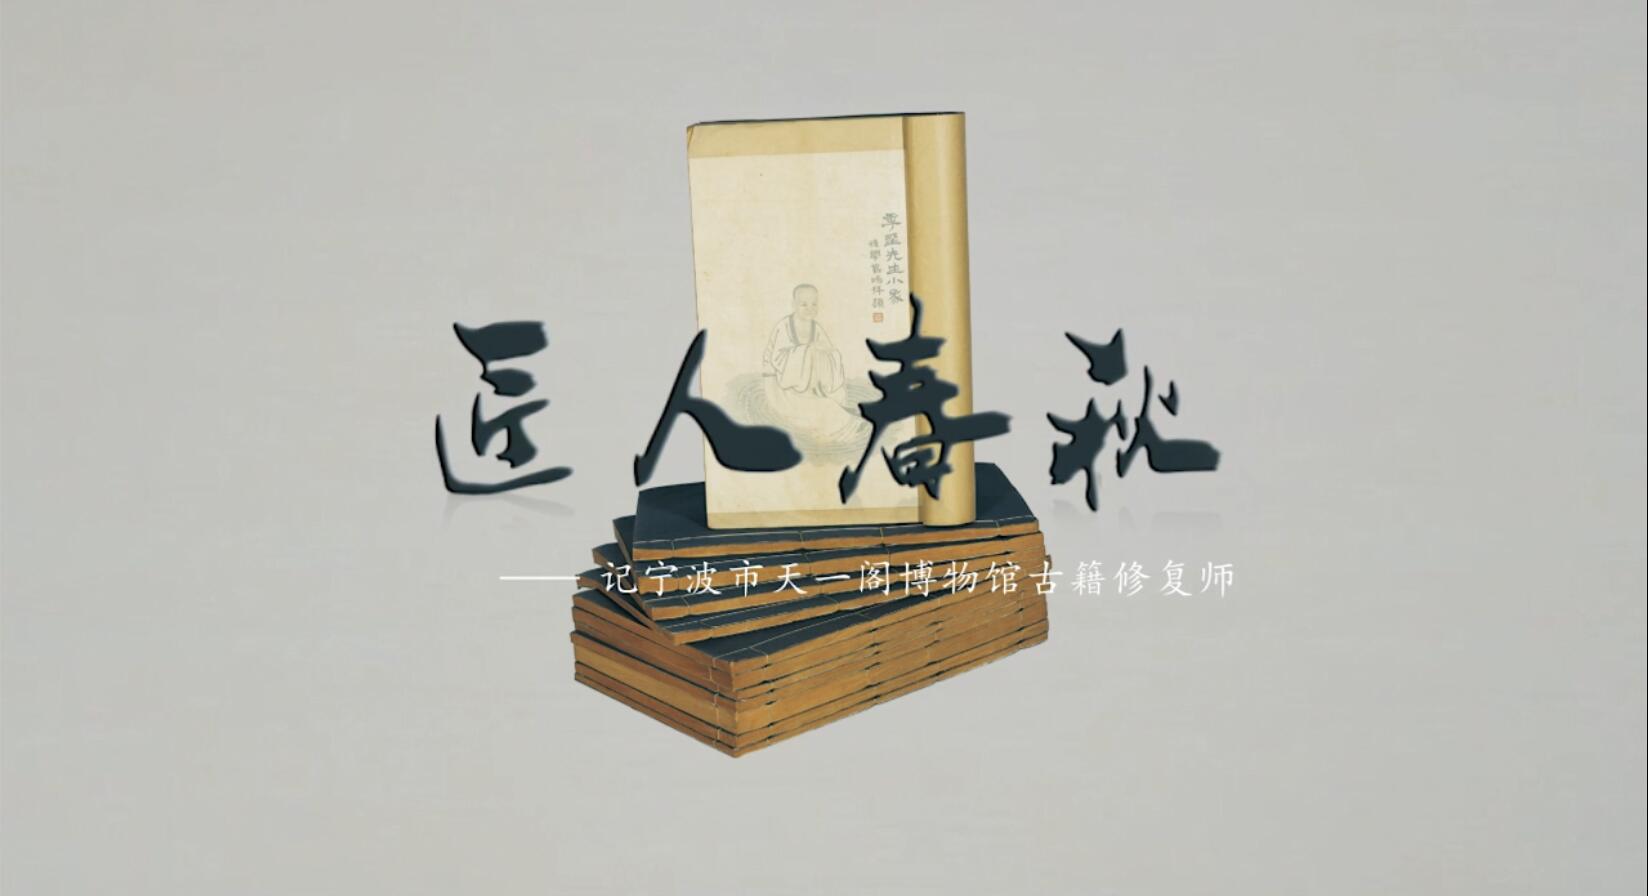 匠人春秋
—— 记宁波市天一阁博物馆古籍修复师
先生小象